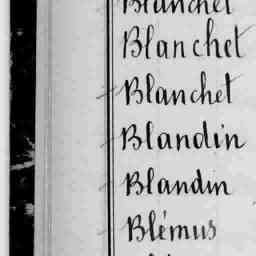 Blanchet
Blanchet
Blanchet
Blandin
Blandin
Blémus